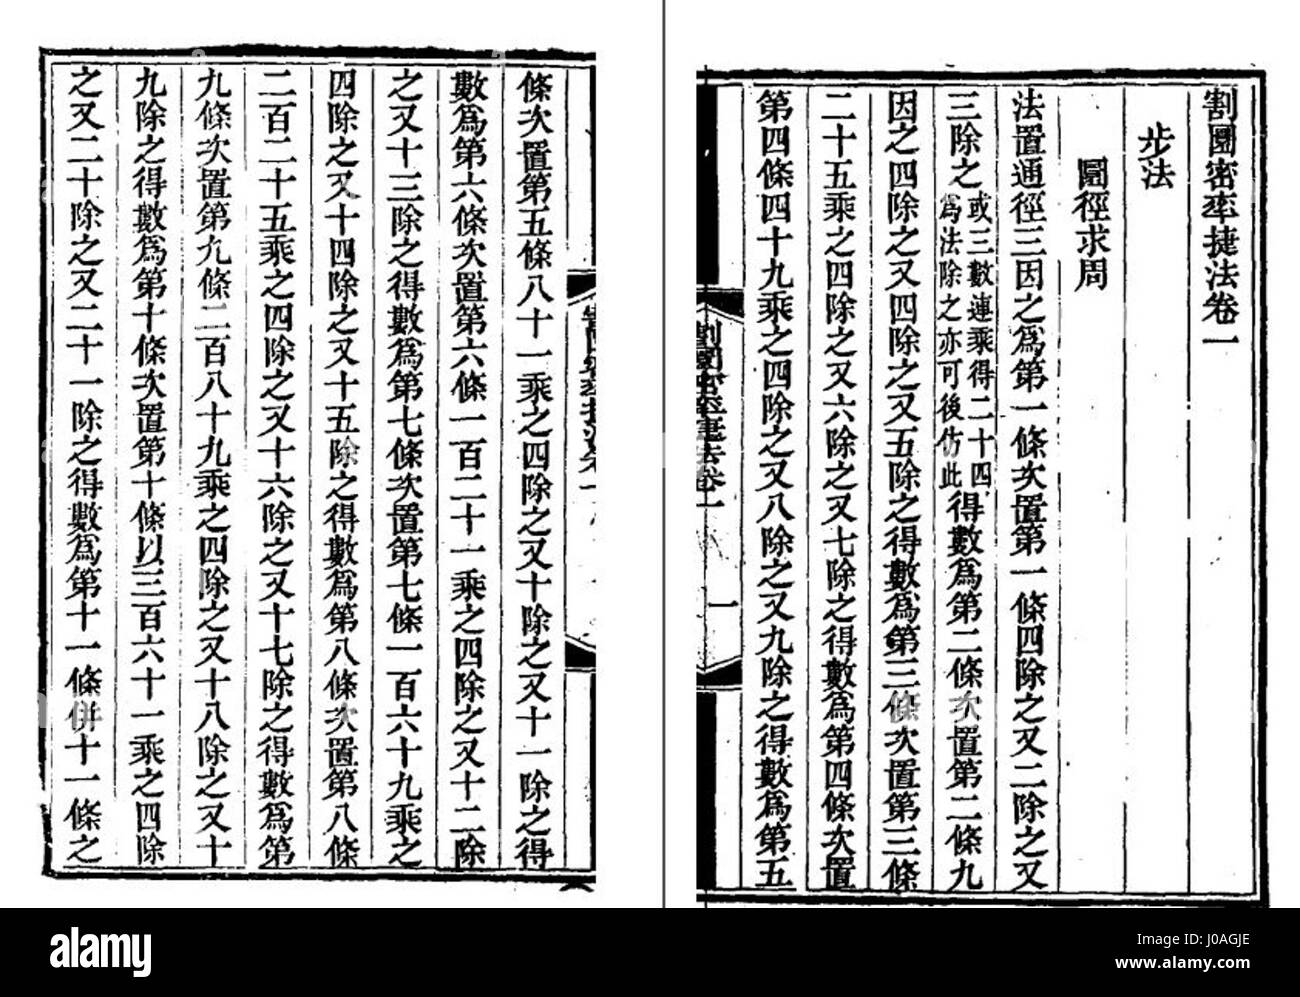 割圜密率捷法卷一
步法
圜徑求周
法置通徑三因之爲第一條次置第一條四除之又二除之又
三除之或三數連乘得二十四爲法除之亦可後仿此得數爲第二條次置第二條九
因之四除之又四除之又五除之得數爲第三條次置第三條
二十五乘之四除之又六除之又七除之得數爲第四條次置
第四條四十九乘之四除之又八除之又九除之得數爲第五
割圜密率捷法卷一
一
條次置第五條八十一乘之四除之又十除之又十一除之得
數爲第六條次置第六條一百二十一乘之四除之又十二除
之又十三除之得數爲第七條次置第七條一百六十九乘之
四除之又十四除之又十五除之得數爲第八條次置第八條
二百二十五乘之四除之又十六除之又十七除之得數爲第
九條次置第九條二百八十九乘之四除之又十八除之又十
九除之得數爲第十條次置第十條以三百六十一乘之四除
之又二十除之又二十一除之得數爲第十一條併十一條之
alamy
Image ID: J0AGJE
www.alamy.com